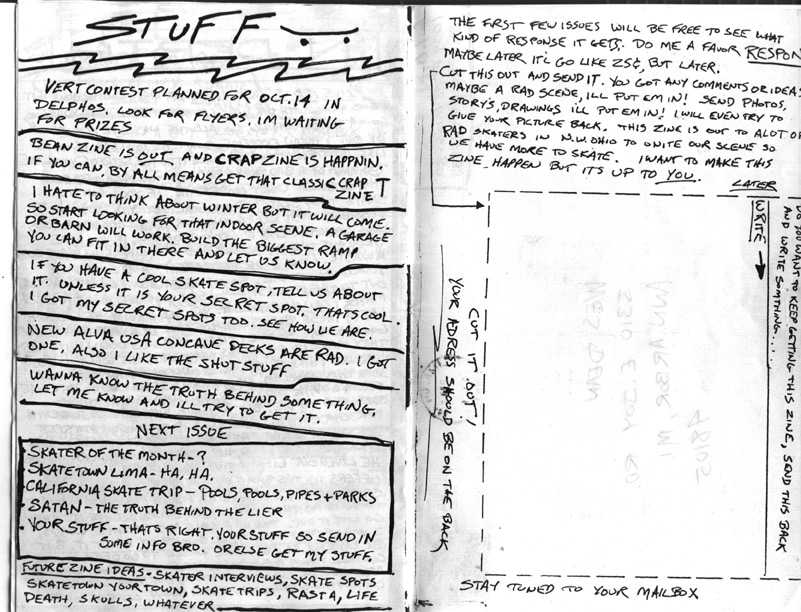 STUFF
VERT CONTEST PLANNED FOR OCT. 14 IN
DELPHOS. LOOK FOR FLYERS. IM WAITING
FOR PRIZES
BEAN ZINE IS OUT AND CRAP ZINE IS HAPPNIN.
IF YOU CAN, BY ALL MEANS GET THAT CLASSIC CRAP
ZINE
I HATE TO THINK ABOUT WINTER BUT IT WILL COME.
SO START LOOKING FOR THAT INDOOR SCENE. A GARAGE
OR BARN WILL WORK. BUILD THE BIGGEST RAMP
YOU CAN FIT IN THERE AND LET US KNOW.
IF YOU HAVE A COOL SKATE SPOT, TELL US ABOUT
IT. UNLESS IT IS YOUR SECRET SPOT, THATS COOL.
I GOT MY SECRET SPOTS TOO. SEE HOW WE ARE.
NEW ALVA USA CONCAVE DECKS ARE RAD. I GOT
ONE. ALSO I LIKE THE SHUT STUFF
WANNA KNOW THE TRUTH BEHIND SOMETHING,
LET ME KNOW AND ILL TRY TO GET IT.
NEXT ISSUE
• SKATER OF THE MONTH - ?
• SKATETOWN LIMA - HA, HA.
• CALIFORNIA SKATE TRIP - POOLS, POOLS, PIPES + PARKS
• SATAN - THE TRUTH BEHIND THE LIER
• YOUR STUFF - THATS RIGHT. YOUR STUFF SO SEND IN
SOME INFO BRO. OR ELSE GET MY STUFF.
FUTURE ZINE IDEAS - SKATER INTERVIEWS, SKATE SPOTS
SKATETOWN YOUR TOWN, SKATE TRIPS, RASTA, LIFE
DEATH, SKULLS, WHATEVER
THE FIRST FEW ISSUES WILL BE FREE TO SEE WHAT
KIND OF RESPONSE IT GETS. DO ME A FAVOR RESPON
MAYBE LATER IT'L GO LIKE 25¢, BUT LATER.
CUT THIS OUT AND SEND IT. YOU GOT ANY COMMENTS OR IDEAS
MAYBE A RAD SCENE, ILL PUT EM IN! SEND PHOTOS,
STORY'S, DRAWINGS ILL PUT EM IN! I WILL EVEN TRY TO
GIVE YOUR PICTURE BACK. THIS ZINE IS OUT TO ALOT OF
RAD SKATERS IN N.W. OHIO TO UNITE OUR SCENE SO
WE HAVE MORE TO SKATE. I WANT TO MAKE THIS
ZINE HAPPEN BUT IT'S UP TO YOU.
LATER
WRITE
YOU WANT TO KEEP GETTING THIS ZINE, SEND THIS BACK
AND WRITE SOMTHING....
CUT IT OUT!
YOUR ADRESS SHOULD BE ON THE BACK
WES DEAN
2310 E. JOY RD
ANN ARBOR, MI
48105
STAY TUNED TO YOUR MAILBOX